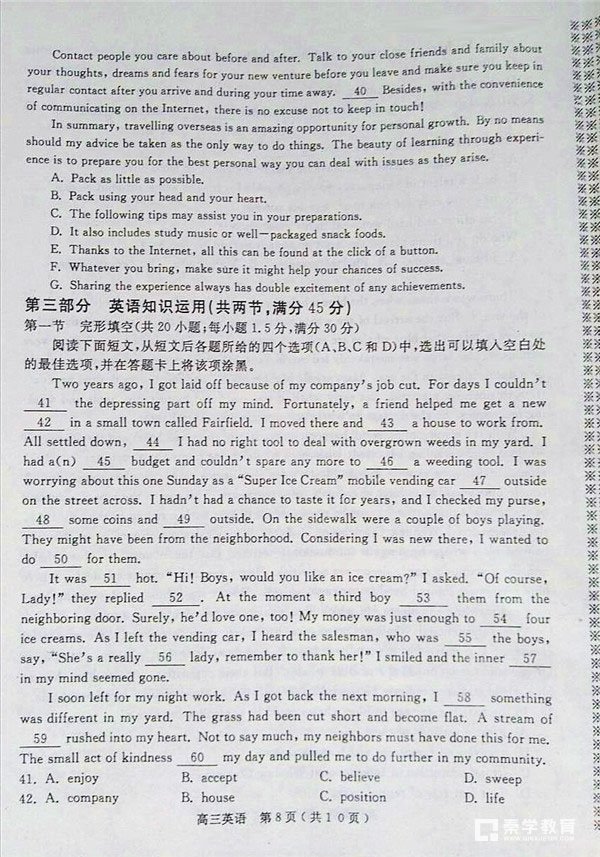 Contact people you care about before and after. Talk to your close friends and family about
your thoughts, dreams and fears for your new venture before you leave and make sure you keep in
regular contact after you arrive and during your time away. 40 Besides, with the convenience
of communicating on the Internet, there is no excuse not to keep in touch!
In summary, travelling overseas is an amazing opportunity for personal growth. By no means
should my advice be taken as the only way to do things. The beauty of learning through experi-
ence is to prepare you for the best personal way you can deal with issues as they arise.
A. Pack as little as possible.
B. Pack using your head and your heart.
C. The following tips may assist you in your preparations.
D. It also includes study music or well-packaged snack foods.
E. Thanks to the Internet, all this can be found at the click of a button.
F. Whatever you bring, make sure it might help your chances of success.
G. Sharing the experience always has double excitement of any achievements.
第三部分 英语知识运用(共两节,满分45分)
第一节 完形填空(共20小题;每小题1.5分,满分30分)
阅读下面短文,从短文后各题所给的四个选项(A、B、C和D)中,选出可以填入空白处
的最佳选项,并在答题卡上将该项涂黑。
Two years ago, I got laid off because of my company's job cut. For days I couldn't
41 the depressing part off my mind. Fortunately, a friend helped me get a new
42 in a small town called Fairfield. I moved there and 43 a house to work from.
All settled down, 44 I had no right tool to deal with overgrown weeds in my yard. I
had a(n) 45 budget and couldn't spare any more to 46 a weeding tool. I was
worrying about this one Sunday as a "Super Ice Cream" mobile vending car 47 outside
on the street across. I hadn't had a chance to taste it for years, and I checked my purse,
48 some coins and 49 outside. On the sidewalk were a couple of boys playing.
They might have been from the neighborhood. Considering I was new there, I wanted to
do 50 for them.
It was 51 hot. "Hi! Boys, would you like an ice cream?" I asked. "Of course,
Lady!" they replied 52 . At the moment a third boy 53 them from the
neighboring door. Surely, he'd love one, too! My money was just enough to 54 four
ice creams. As I left the vending car, I heard the salesman, who was 55 the boys,
say, "She's a really 56 lady, remember to thank her!" I smiled and the inner 57
in my mind seemed gone.
I soon left for my night work. As I got back the next morning, I 58 something
was different in my yard. The grass had been cut short and become flat. A stream of
59 rushed into my heart. Not to say much, my neighbors must have done this for me.
The small act of kindness 60 my day and pulled me to do further in my community.
41. A. enjoy B. accept C. believe D. sweep
42. A. company B. house C. position D. life
高三英语 第8页(共10页)
秦学教育